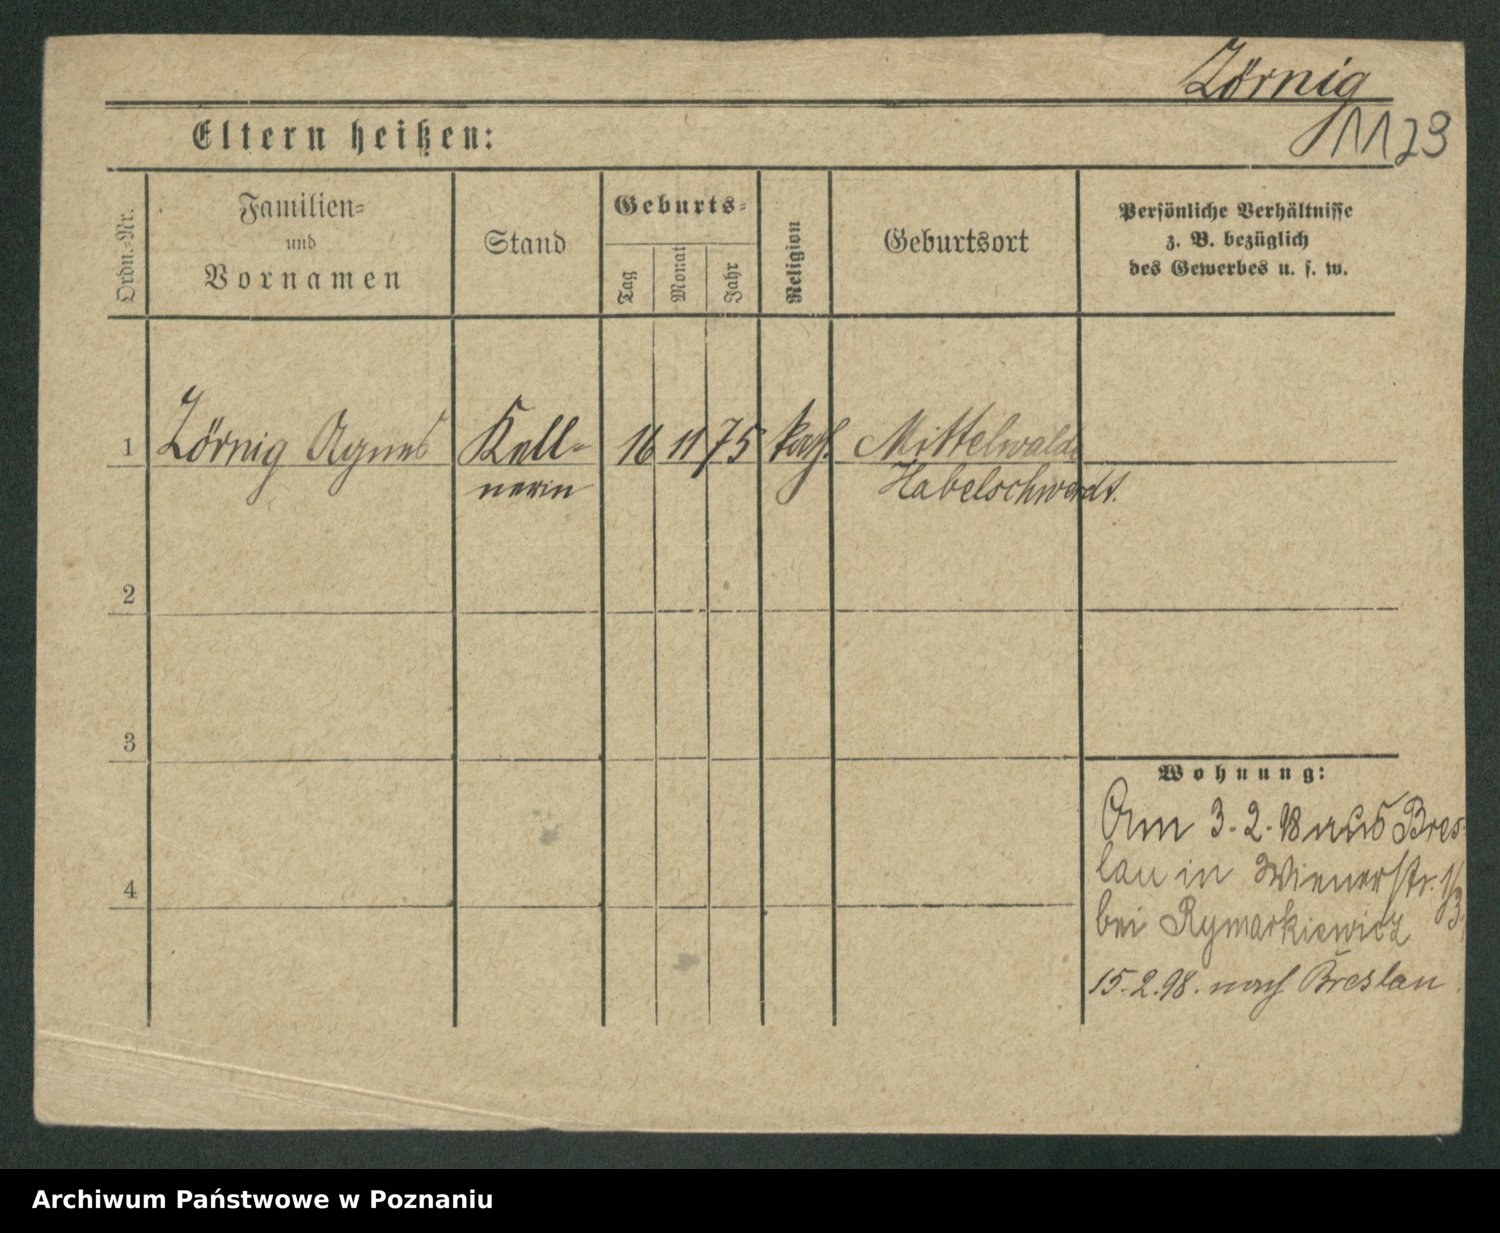 Zörnig
1123
Eltern heißen:
Ordn.-Nr.
Familien-
und
Vornamen
Stand
Geburts-
Tag
Monat
Jahr
Religion
Geburtsort
Persönliche Verhältnisse
z. B. bezüglich
des Gewerbes u. s. w.
1 Zörnig Agnes Kell- 16 11 75 kath. Mittelwalde
nerin Habelschwerdt.
2
3
Wohnung:
Am 3.2.98 aus Bres-
lau in Wienerstr.
bei Rymarkiewicz
4
15.2.98. nach Breslau.
Archiwum Państwowe w Poznaniu